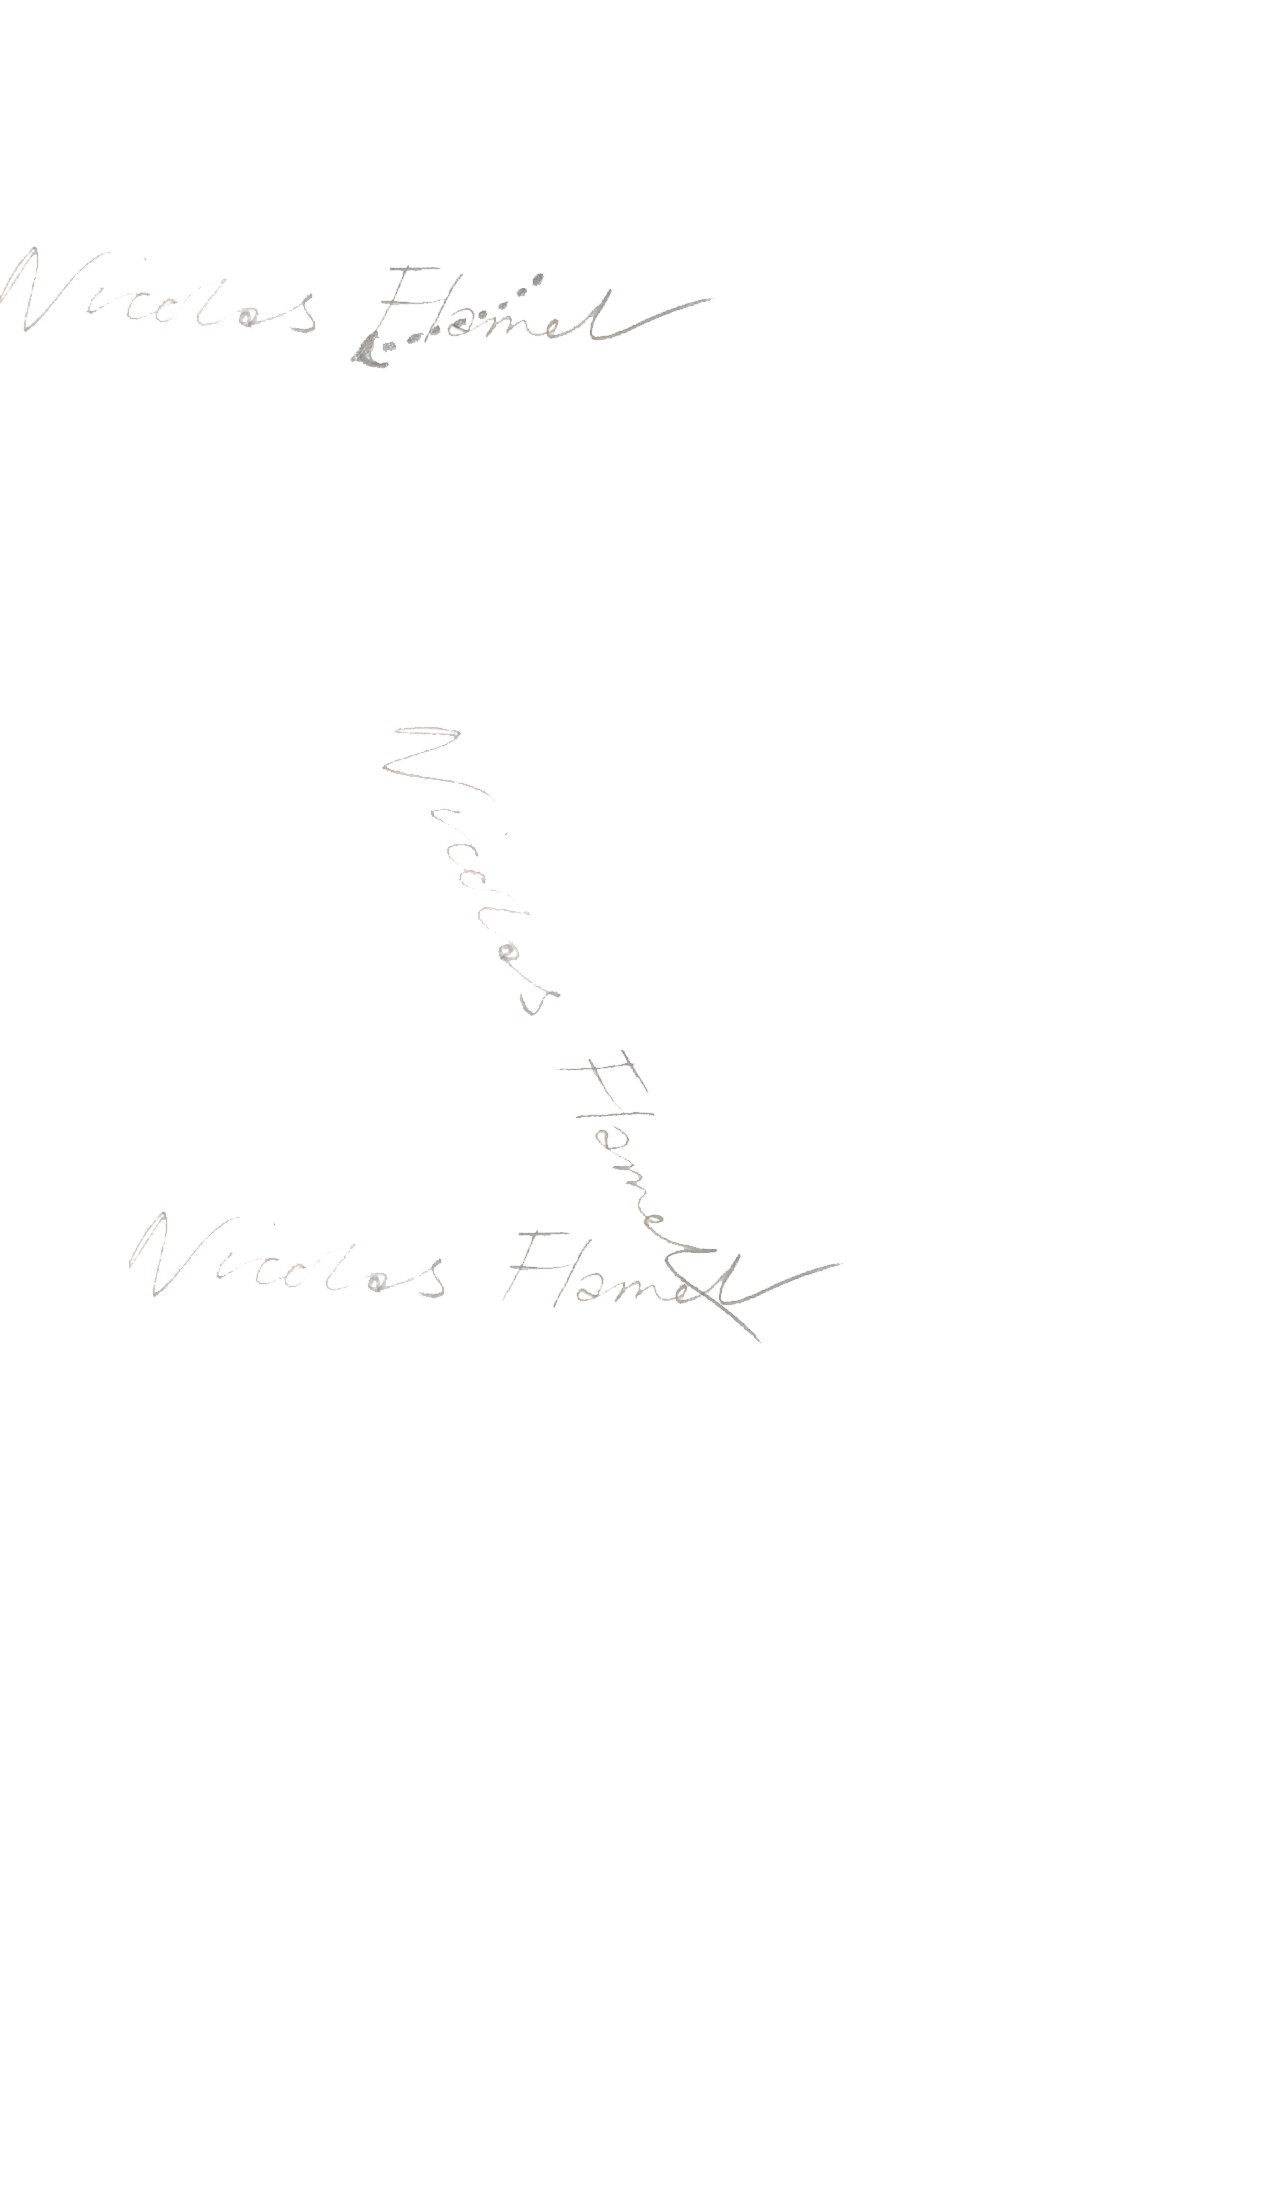 Nicolas Flamel
Nicolas Flamel
Nicolas Flamel